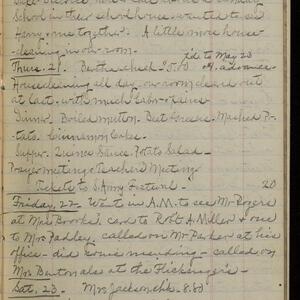 School in their school house - wanted to see
Harry & me together. A little more house-
cleaning in our room.
p'd to May 23
Thurs. 21. Bertha's chck 25.00 off. advance
House cleaning all day - our room cleared out
at last, with much labor & fuss
Dinner Boiled mutton. Beet Greens. Mashed Po-
tatoes. Cinnamon Cake.
Supper. Quince Sauce Potato Salad -
Prayer meeting & Teachers' Meeting
Tickets to S. Army Festival - 20
Friday, 22 - Went in A.M. to see Mr Rogers
at Mrs Brooks. Card to Robt A. Miller & one
to Mrs Padley, called on Mr Parker at his
office - did some mending - called on
Mrs Benton also at the Flickinger's -
Sat. 23 - Mrs Jackson chk. 8.50